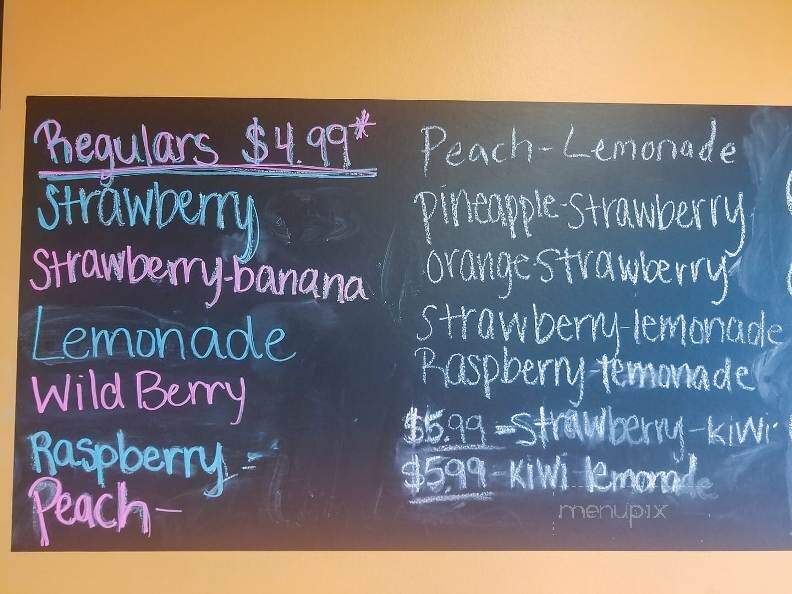 Regulars $4.99*
Strawberry
Strawberry-banana
Lemonade
Wild Berry
Raspberry -
Peach-
Peach-Lemonade
pineapple-strawberry
orange-strawberry
Strawberry-lemonade
Raspberry lemonade
$5.99 - Strawberry-kiwi
$5.99-KiWi lemonade
menupix